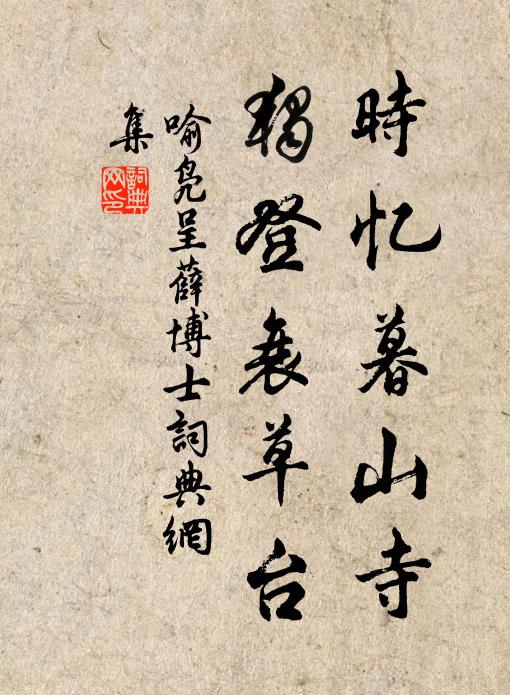 時忆暮山寺
獨登衰草台
喻凫呈薛博士詞典網
集
詞典
网印